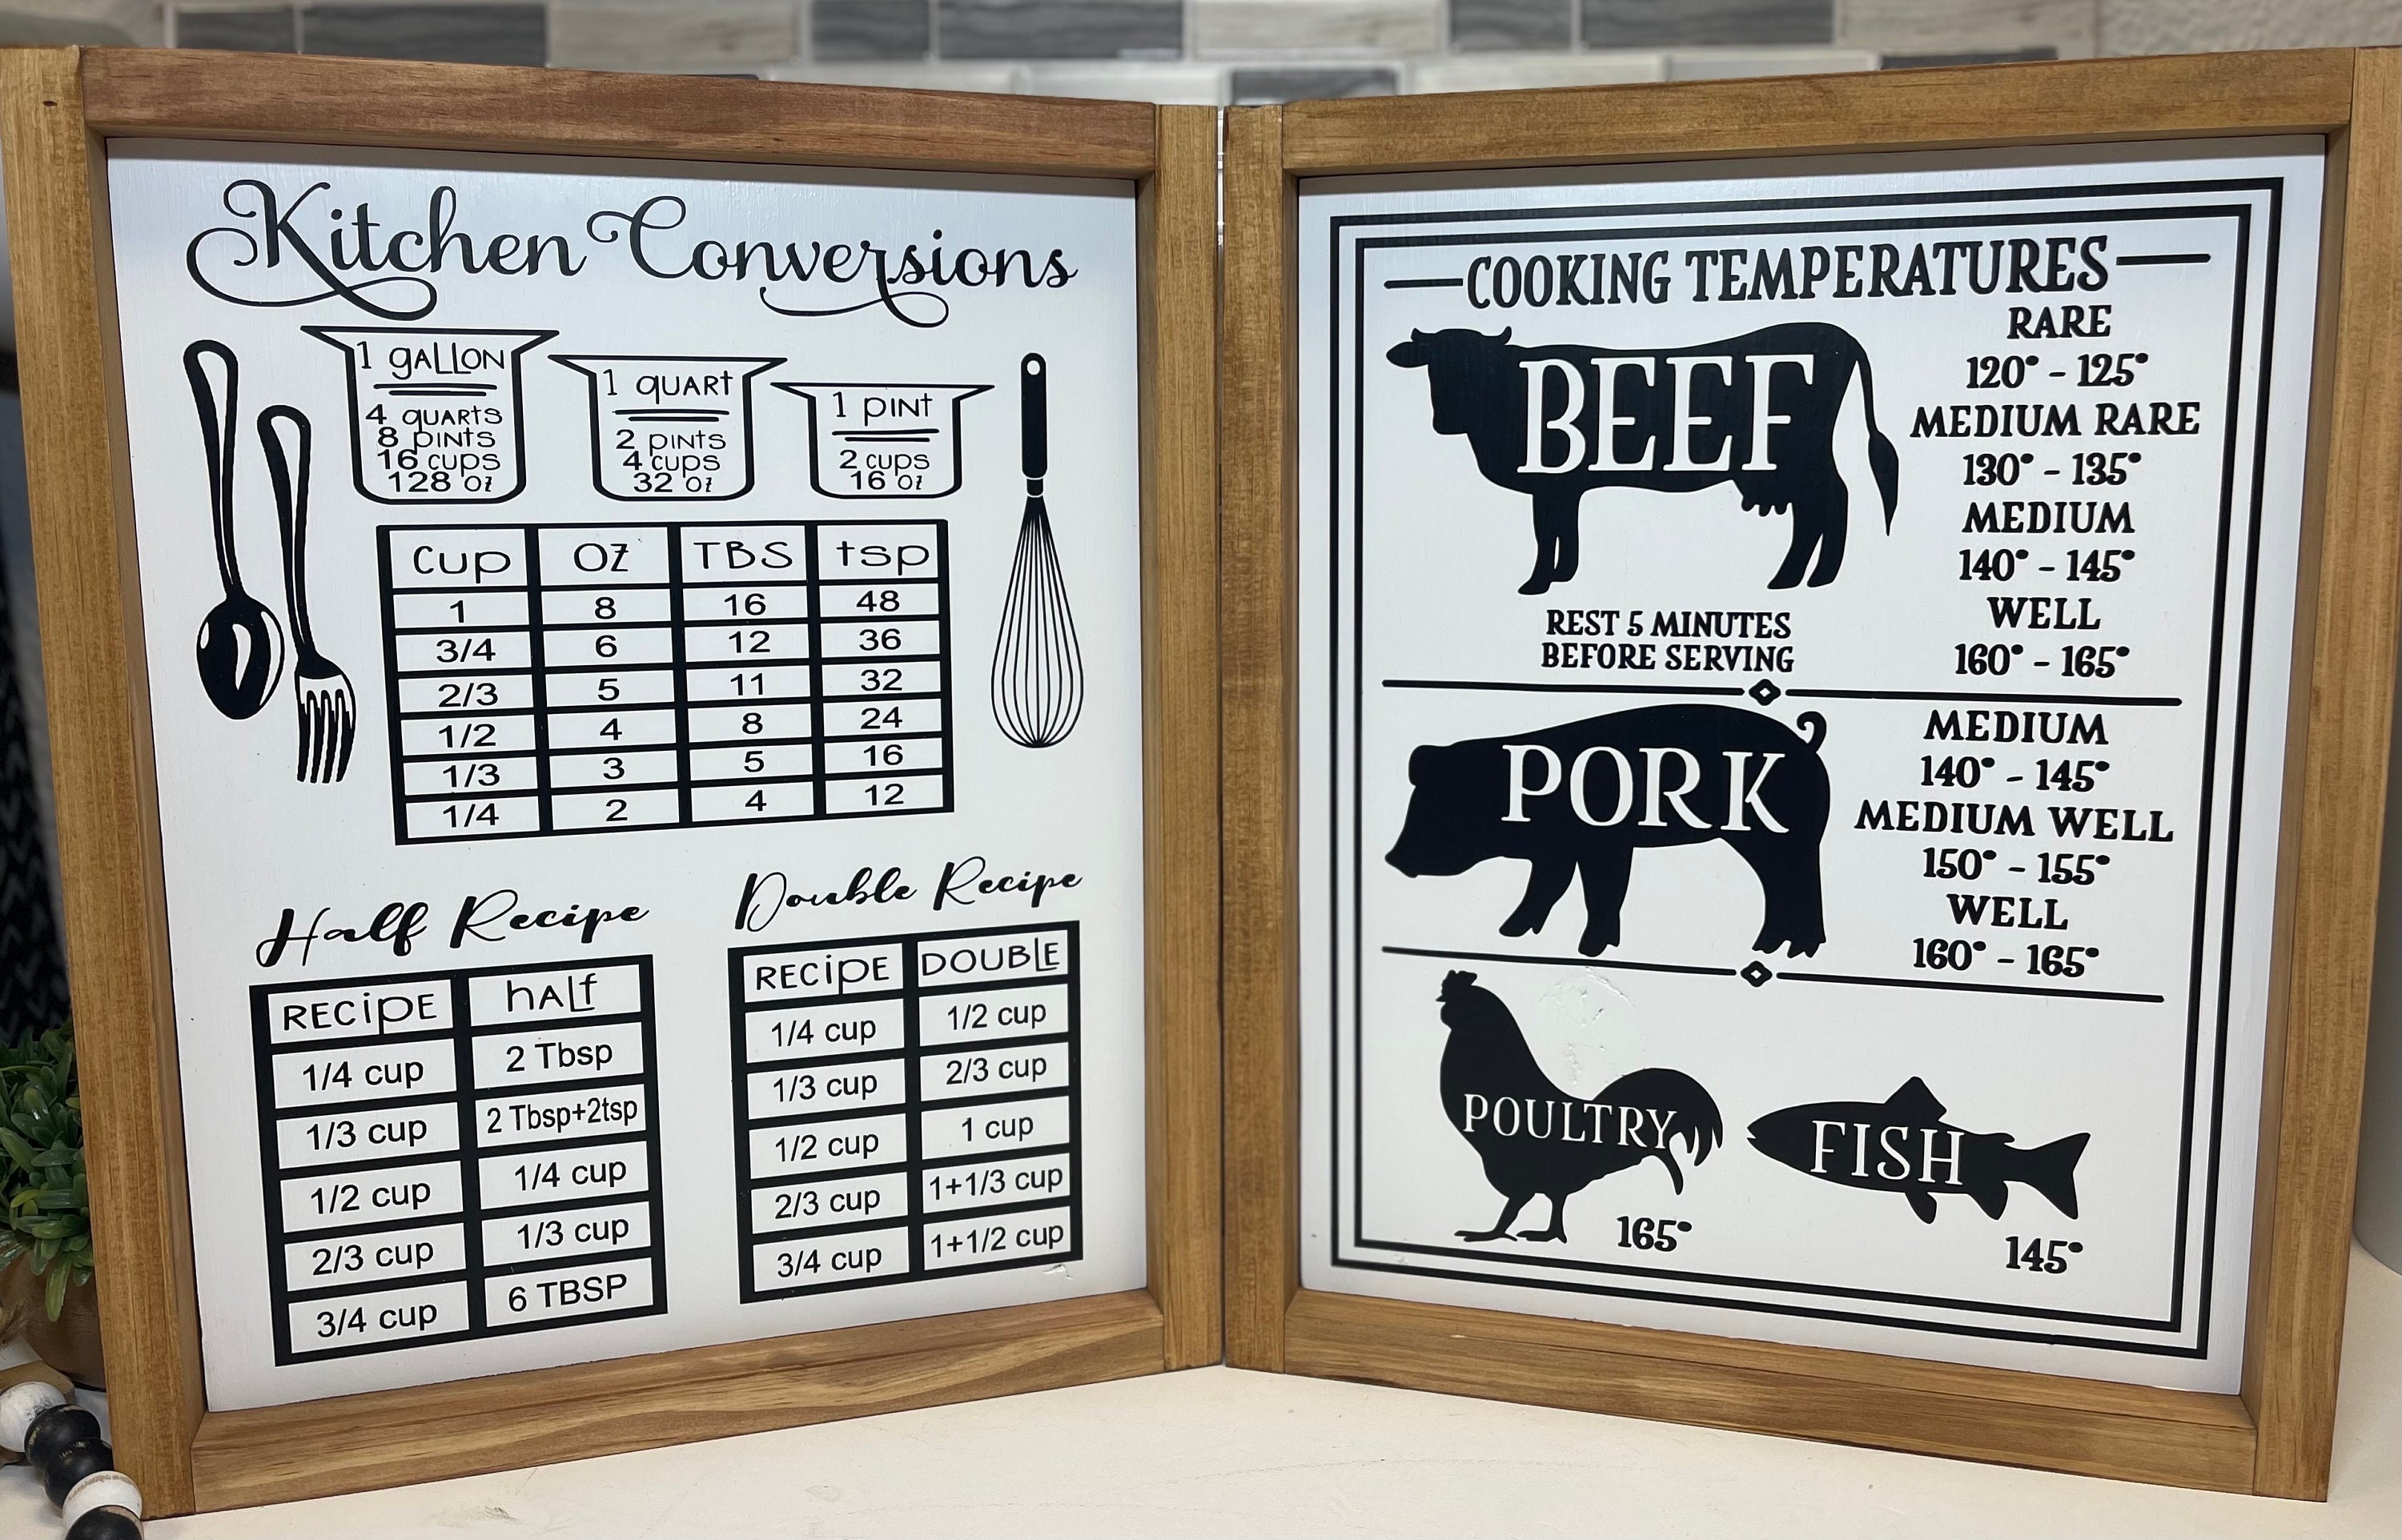 Kitchen Conversions
1 gALLON
4 quARTS
8 piNTS
16 cups
128 Oz
1 quART
2 piNTS
4 cups
32 Oz
1 piNt
2 cups
16 Oz
cup OZ TBS tsp
1 8 16 48
3/4 6 12 36
2/3 5 11 32
1/2 4 8 24
1/3 3 5 16
1/4 2 4 12
Half Recipe
RECipE hALf
1/4 cup 2 Tbsp
1/3 cup 2 Tbsp+2tsp
1/2 cup 1/4 cup
2/3 cup 1/3 cup
3/4 cup 6 TBSP
Double Recipe
RECipE DOUBLE
1/4 cup 1/2 cup
1/3 cup 2/3 cup
1/2 cup 1 cup
2/3 cup 1+1/3 cup
3/4 cup 1+1/2 cup
COOKING TEMPERATURES
BEEF
RARE
120° - 125°
MEDIUM RARE
130° - 135°
MEDIUM
140° - 145°
WELL
160° - 165°
REST 5 MINUTES
BEFORE SERVING
PORK
MEDIUM
140° - 145°
MEDIUM WELL
150° - 155°
WELL
160° - 165°
POULTRY
165°
FISH
145°